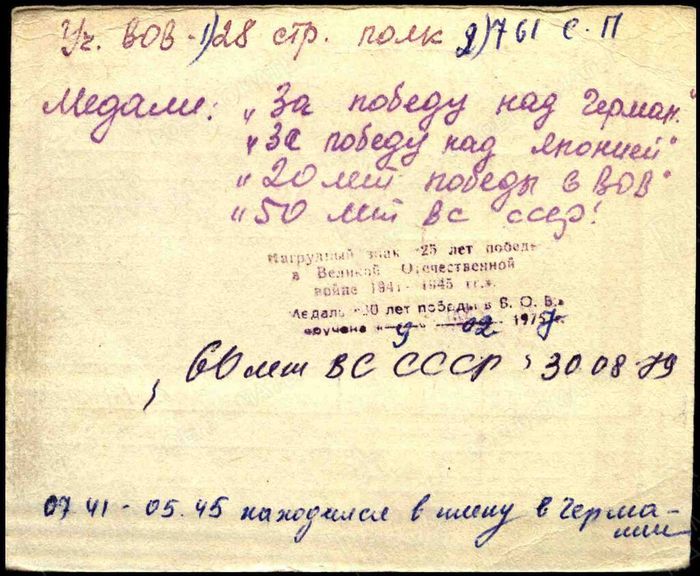 Уч. ВОВ - 1) 28 стр. полк 2) 761 с. П
Медали: „За победу над Герман."
„За победу над Японией"
„20 лет победы в ВОВ"
„50 лет ВС СССР!
Нагрудный знак «25 лет победы
в Великой Отечественной
войне 1941-1945 гг.».
Медаль «30 лет победы в В. О. В.»
вручена « 9 » 02 1977 г.
, 60 лет ВС СССР, 30 08 79
07 41 - 05. 45 находился в плену в Герма-
нии